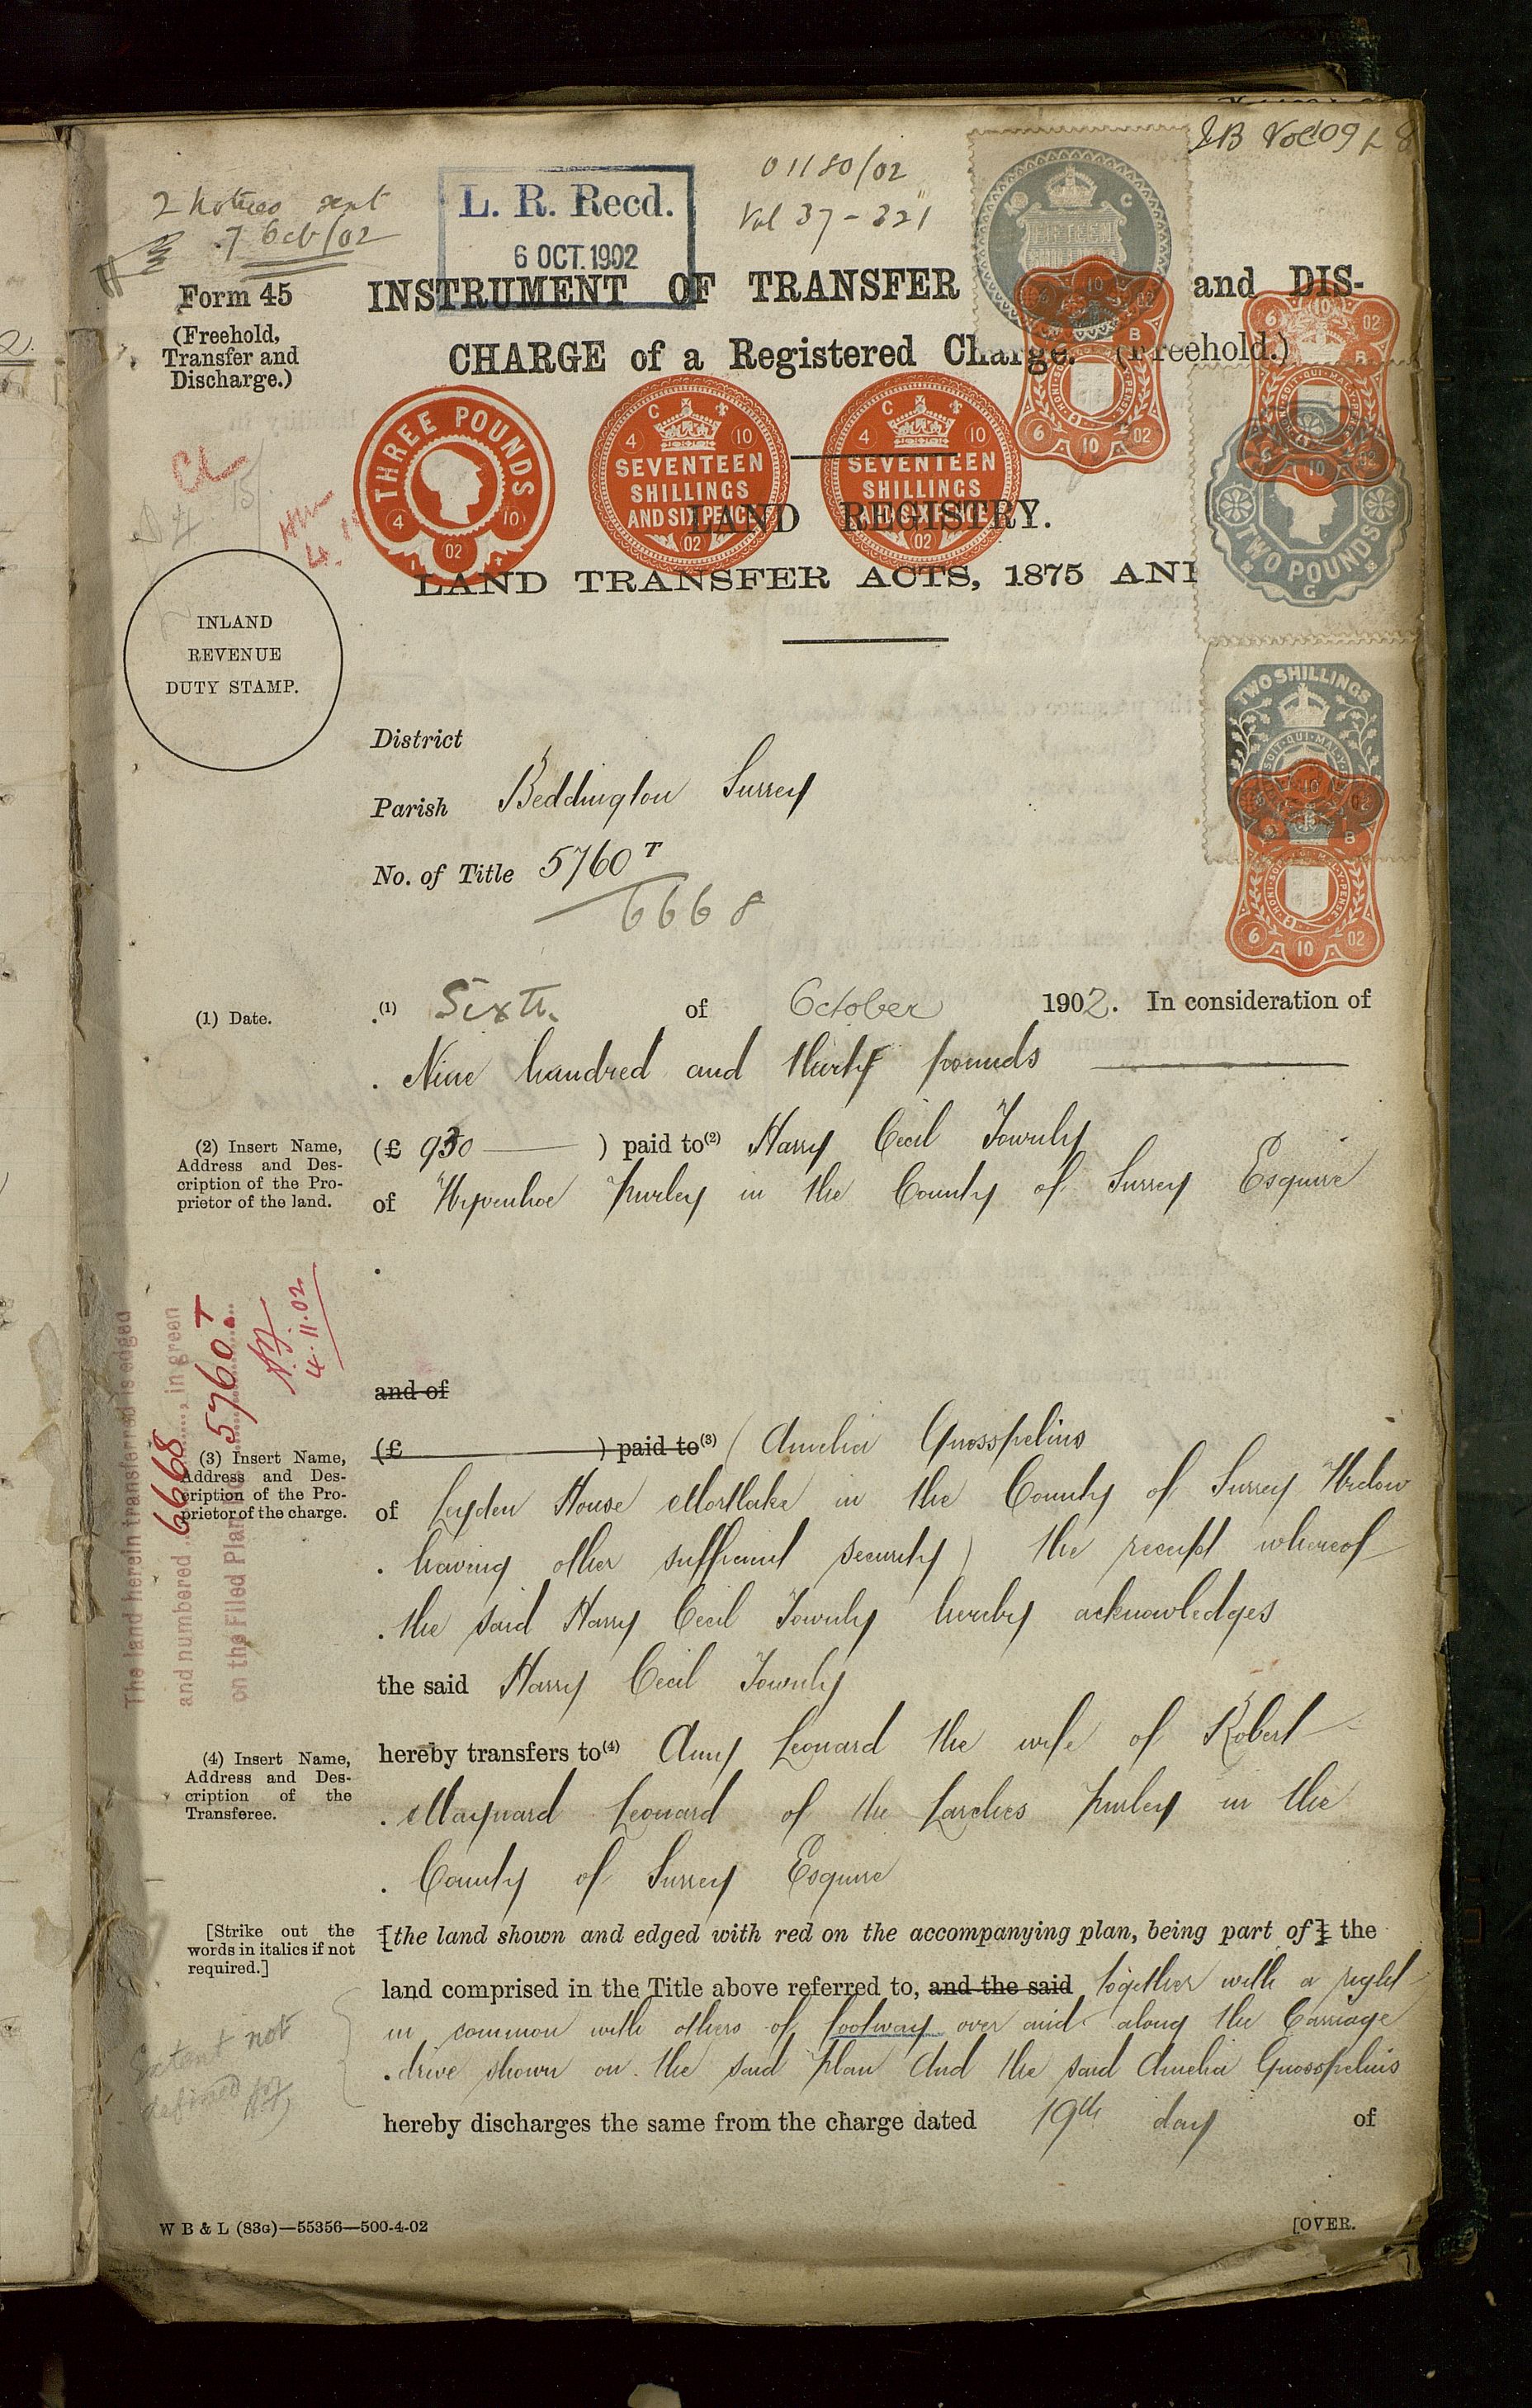 2 notices sent
7 Octr/02
L. R. Recd.
6 OCT. 1902
01180/02
Vol 37 - 321
Form 45
(Freehold,
Transfer and
Discharge.)
INSTRUMENT OF TRANSFER and DIS-
CHARGE of a Registered Charge. (Freehold.)
FIFTEEN
SHILLINGS
THREE POUNDS
4 10
02
SEVENTEEN
SHILLINGS
AND SIX PENCE
4 10
02
SEVENTEEN
SHILLINGS
AND SIX PENCE
4 10
02
6 10 02
B
HONI·SOIT·QUI·MAL·Y·PENSE
6 10 02
6 10 02
B
HONI·SOIT·QUI·MAL·Y·PENSE
6 10 02
TWO POUNDS
G
LAND REGISTRY.
LAND TRANSFER ACTS, 1875 AN
INLAND
REVENUE
DUTY STAMP.
TWO SHILLINGS
6 10 02
B
HONI·SOIT·QUI·MAL·Y·PENSE
6 10 02
District
Parish Beddington Surrey
No. of Title 5760 T
6668
(1) Date.
(1) Sixth of October 1902. In consideration of
Nine hundred and thirty pounds
(2) Insert Name,
Address and Des-
cription of the Pro-
prietor of the land.
(£ 930 ) paid to(2) Harry Cecil Townly
of Wyvenhoe Purley in the County of Surrey Esquire
The land herein transferred is edged
and numbered 6668, in green
on the Filed Plan No. 5760 T
4.11.02
and of
(3) Insert Name,
Address and Des-
cription of the Pro-
prietor of the charge.
(£ ) paid to(3) (Amelia Gnosspelius
of Leyden House Mortlake in the County of Surrey Widow
having other sufficient security) the receipt whereof
the said Harry Cecil Townly hereby acknowledges
the said Harry Cecil Townly
(4) Insert Name,
Address and Des-
cription of the
Transferee.
hereby transfers to(4) Amy Leonard the wife of Robert
Maynard Leonard of the Larches Purley in the
County of Surrey Esquire
[Strike out the
words in italics if not
required.]
[the land shown and edged with red on the accompanying plan, being part of] the
land comprised in the Title above referred to, and the said together with a right
in common with others of footway over and along the Carriage
drive shown on the said plan And the said Amelia Gnosspelius
Extent not
defined
hereby discharges the same from the charge dated 19th day of
W B & L (83G)—55356—500-4-02
[OVER.